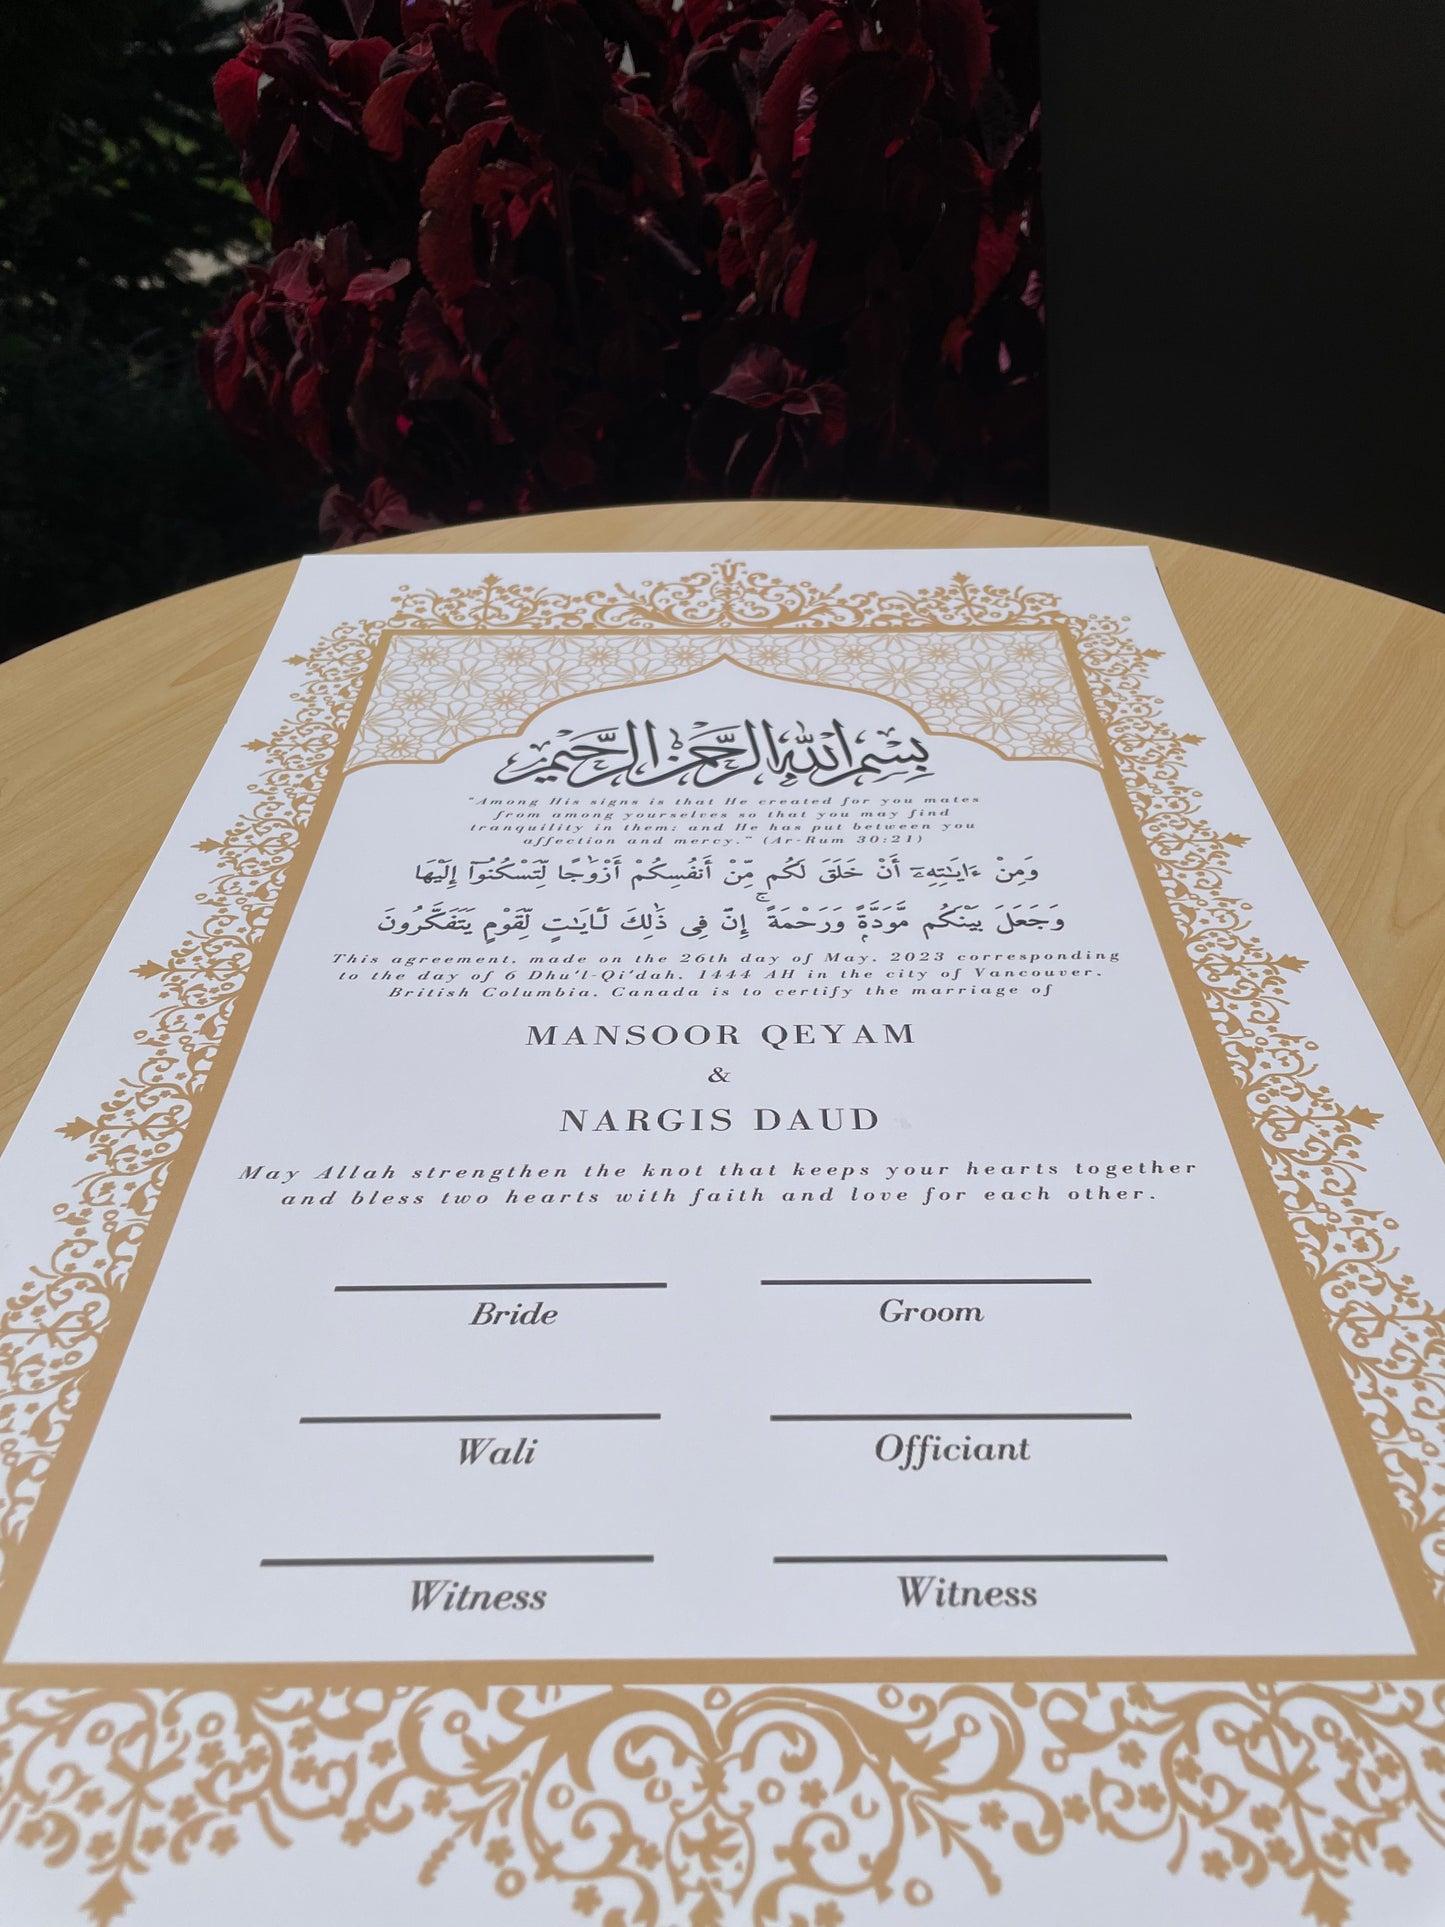 بسم الله الرحمن الرحيم
"Among His signs is that He created for you mates
from among yourselves so that you may find
tranquility in them; and He has put between you
affection and mercy." (Ar-Rum 30:21)
وَمِنْ ءَايَـٰتِهِۦٓ أَنْ خَلَقَ لَكُم مِّنْ أَنفُسِكُمْ أَزْوَٰجًا لِّتَسْكُنُوٓا۟ إِلَيْهَا
وَجَعَلَ بَيْنَكُم مَّوَدَّةً وَرَحْمَةً ۚ إِنَّ فِى ذَٰلِكَ لَـَٔايَـٰتٍ لِّقَوْمٍ يَتَفَكَّرُونَ
This agreement, made on the 26th day of May, 2023 corresponding
to the day of 6 Dhu'l-Qi'dah, 1444 AH in the city of Vancouver,
British Columbia, Canada is to certify the marriage of
MANSOOR QEYAM
&
NARGIS DAUD
May Allah strengthen the knot that keeps your hearts together
and bless two hearts with faith and love for each other.
Bride Groom
Wali Officiant
Witness Witness